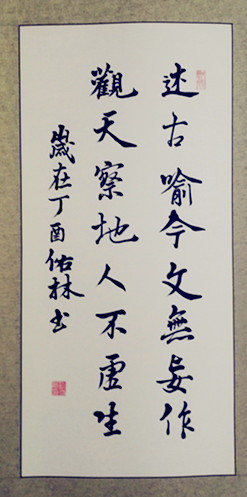 述古喻今文無妄作
觀天察地人不虛生
歲在丁酉佑林书